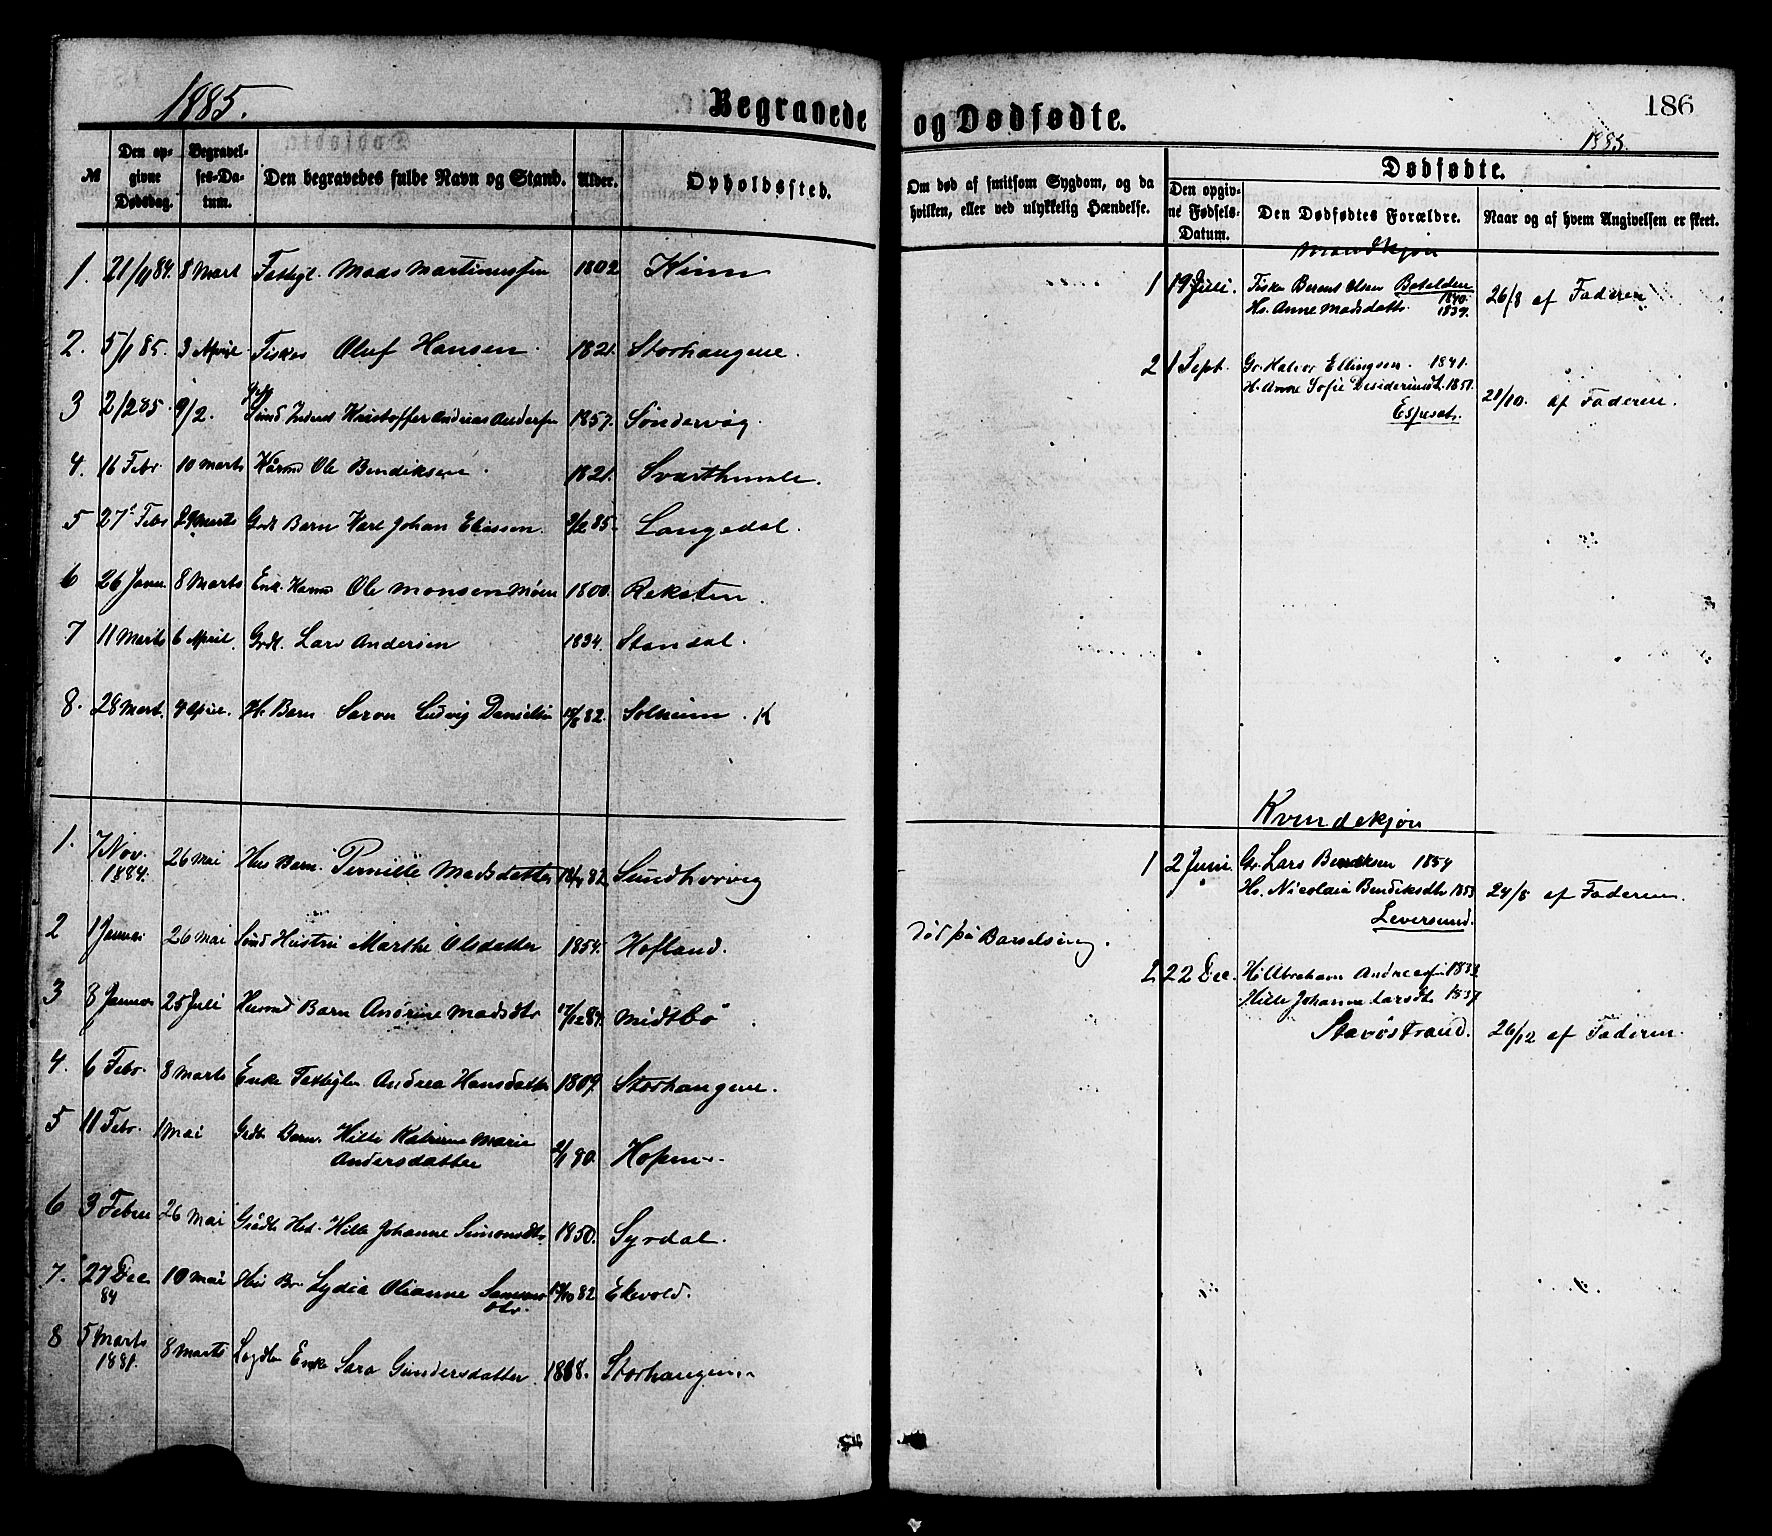 1885.
Begravede
№
Den opgivne Dødsdag.
Begravelses-Datum.
Den begravedes fulde Navn og Stand.
Alder.
Opholdssted.
1. 21/11 84. 8 Mart Fattigl. Mads Martinussen 1802 Kinn
2. 5/1 85. 3 April Fisker Oluf Hansen. 1821. Storhangene.
3 2/2 85. 9/2. Kristoffer Andreas Andersen 1857. Söndervåg.
4. 16 Febr 10 Marts Kårmd Ole Bendiksen. 1821. Svarthumle.
5 27 Febr 29 Marts Grdt Barn Karl Johan Eliassen. 9/2 85. Langedal
6 26 Janu. 8 Marts Enk. Kaarmd Ole Monsen Møen 1800. Reksten.
7 11 Marts 6 April. Grdt. Lars Andersen 1834. Standal.
8. 28 Mart. 4 April. H. Barn Saron Ludvig Danielsen 82. Solheim. K
1. 7 Nov. 1884. 26 Mai Hus Barn. Pernille Madsdatter 82. Sundhovvig
2 1 Januar 26 Mai Hustru Marthe Olsdatter 1854. Hofland.
3 8 Januar 25 Juli Husmd Barn Andrine Madsdtr 17/12 84. Midtbö
4. 6 Febr. 8 Marts Enke Fattigl Andrea Hansdatter 1809. Storhangene.
5 11 Febr. 1 Mai Grdbr Barn. Hille Katrine Marie
Andersdatter 2/1 80. Hopen.
6 3 Febru 26 Mai Grdbr Hst. Hille Johanne Simonsdtr 1850. Syrdal.
7. 27 Dec. 84 10 Mai Hus Br. Lydia Olianne 82 Ekevold.
8 5 Marts 1881. 8 Marts Lægdsl Enke Sara Gundersdatter. 1808. Storhangen
og Dødfødte.
186
1885.
Om død af smitsom Sygdom, og da hvilken, eller ved ulykkelig Hændelse.
Dødfødte.
Den opgivne Fødsels-Datum.
Den Dødfødtes Forældre.
Naar og af hvem Angivelsen er skeet.
Mandkjön
1 19 Juli. Fisker Berent Olsen Botolden 1840.
Hs. Anne Madsdattr. 1839. 26/8 af Faderen
2 1 Sept. Gr. Halvor Ellingsen. 1841.
H. Anne Sofie Desideriusdt. 1851.
Espeset. 21/10. af Faderen.
Kvindekjön
1 2 Juni. Gr. Lars Bendiksen 1854
Hs. Nicolaia Bendiksdtr 1853 24/8 af Faderen.
Leversund.
Död på Barselseng.
2 22 Dec. Hs. Abraham Andreassen 1833
Hille Johanne Larsdt. 1837
Stavöstrand. 26/12 af Faderen.